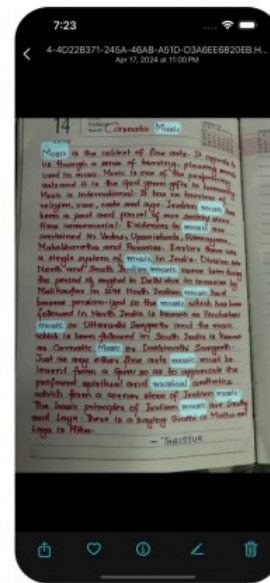 7:23
4-4D22B371-245A-46AB-A51D-D3A6EE6B20EB.H...
Apr 17, 2024 at 11:00 PM
14 Carnatic Music
Music is the noblest of fine arts. It appeals to
us through a sense of hearing, pleasing sounds
used in music. Music is one of the performing
arts and it is the God given gifts to humanity
Music is international. It has no barriers of
religion, race, caste and age. Indian music has
been a part and parcel of our society since
time immemorial. Evidences to music are
contained in Vedas, Upanishads, Ramayana,
Mahabharatha and Puranas. Earlier there was
a single system of music in India. Division in
North and South Indian music came later during
the period of mughal in Delhi due to invasion by
North Indian music had
become persian-ized so the music which has been
followed in North India is known as Hindustani
music or Uttaradhi Sangeeta and the music
which is been followed in South India is known
as Carnatic Music or Dakshinathi Sangeeth.
Just as any other fine arts music must be
learnt from a Guru so as to appreciate the
profound spiritual and musical aesthetics
which form a corner stone of Indian music.
The basic principles of Indian music are Sruthi
and Laya. There is a saying Sruthi is Matha and
Laya is Pitha.
- THRISSUR